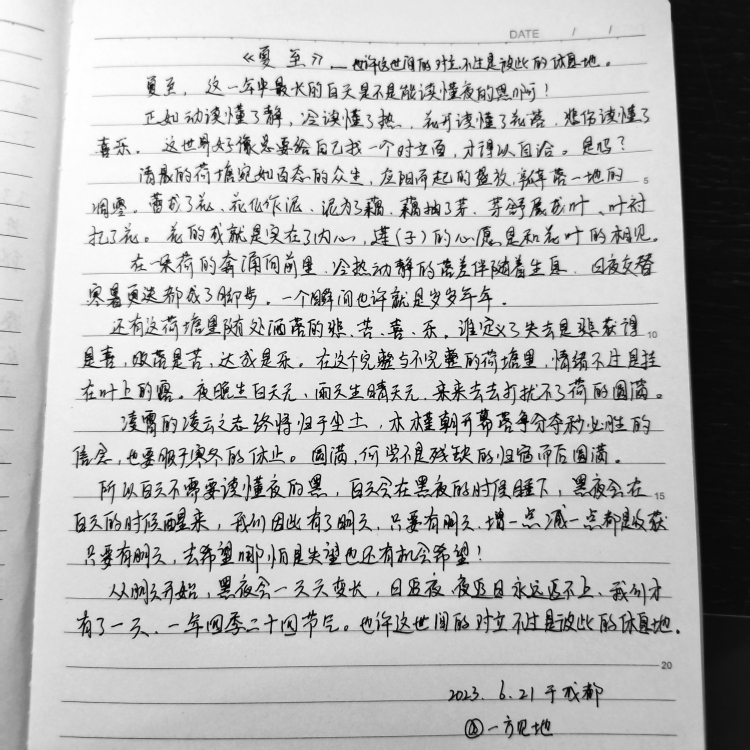 DATE / /
《夏至》—也许这世间的对立不过是彼此的休息地。
夏至,这一年中最长的白天是不是能读懂夜的黑啊!
正如动读懂了静,冷读懂了热,花开读懂了花落,悲伤读懂了
喜乐。这世界好像总要给自己找一个对立面,才得以自洽。是吗?
清晨的荷塘宛如百态的众生,应阳而起的盛放,静落一地的 5
凋零。蕾成了花、花化作泥、泥为了藕、藕抽了芽、芽舒展成叶、叶衬
托了花。花的成就是实在了内心,莲(子)的心愿是和花叶的相见。
在一朵荷的奔涌向前里,冷热动静的落差伴随着生息,日夜交替
寒暑更迭都成了脚步。一个瞬间也许就是岁岁年年。
还有这荷塘里随处洒落的悲、苦、喜、乐。谁定义了失去是悲获得 10
是喜,败落是苦,达成是乐。在这个完整与不完整的荷塘里,情绪不过是挂
在叶上的露。夜晚生白天无,雨天生晴天无,来来去去打扰不了荷的圆满。
凌霄的凌云之志终将归于尘土,木槿朝开暮落争分夺秒必胜的
信念,也要服于寒冬的休止。圆满,何尝不是残缺的归宿而后圆满。
所以白天不需要读懂夜的黑,白天会在黑夜的时候睡下,黑夜会在 15
白天的时候醒来,我们因此有了明天,只要有明天,增一点减一点都是收获
只要有明天,去希望哪怕是失望也还有机会希望!
从明天开始,黑夜会一天天变长,日追夜、夜追日永远追不上、我们才
有了一天、一年四季二十四节气。也许这世间的对立不过是彼此的休息地。
20
2023.6.21于成都
@一方见地